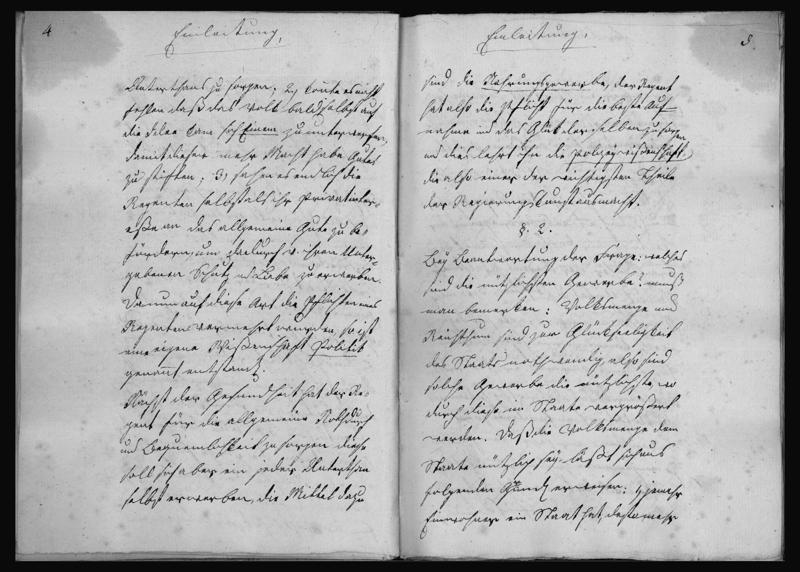 4
Einleitung,
Unterthans zu sorgen; 2, konte es nicht
fehlen daß das Volk bald selbst auf
die Idee kam sich Einem zu unterwerfen,
damit dieser mehr Macht habe Gutes
zu stiften; 3, sahen es endlich die
Regenten selbst als ihr Privatinter-
eße an das allgemeine Gute zu be-
fördern, um dadurch v. ihren Unter-
gebenen Schutz und Liebe zu erwerben.
Da nun auf diese Art die Pflichten eines
Regenten vermehrt wurden, so ist
eine eigene Wißenschaft Politik
genannt entstand.
Nächst der Gesundheit hat der Re-
gent für die allgemeine Nothdurft
und Bequemlichkeit zu sorgen diese
soll sich aber ein jeder Unterthan
selbst erwerben, die Mittel dazu
5.
Einleitung.
sind die Nahrungsgewerbe, der Regent
hat also die Pflicht für die beste Auf-
nahme und das Glück derselben zu sorgen
und dies lehrt ihn die Polizeywißenschaft,
die also einer der wichtigsten Theile
der Regierungskunst ausmacht.
§. 2.
Bey Beantwortung der Frage: welches
sind die nützlichsten Gewerbe? muß
man bemerken: Volksmenge und
Reichthum sind zur Glückseeligkeit
des Staats nothwendig, also sind
solche Gewerbe die nützlichste, wo
durch diese im Staate vergrößert
werden. Daß die Volksmenge dem
Staate nützlich sey läßt sich aus
folgenden Gründen erweisen: 1, je mehr
Einwohner ein Staat hat, desto mehr